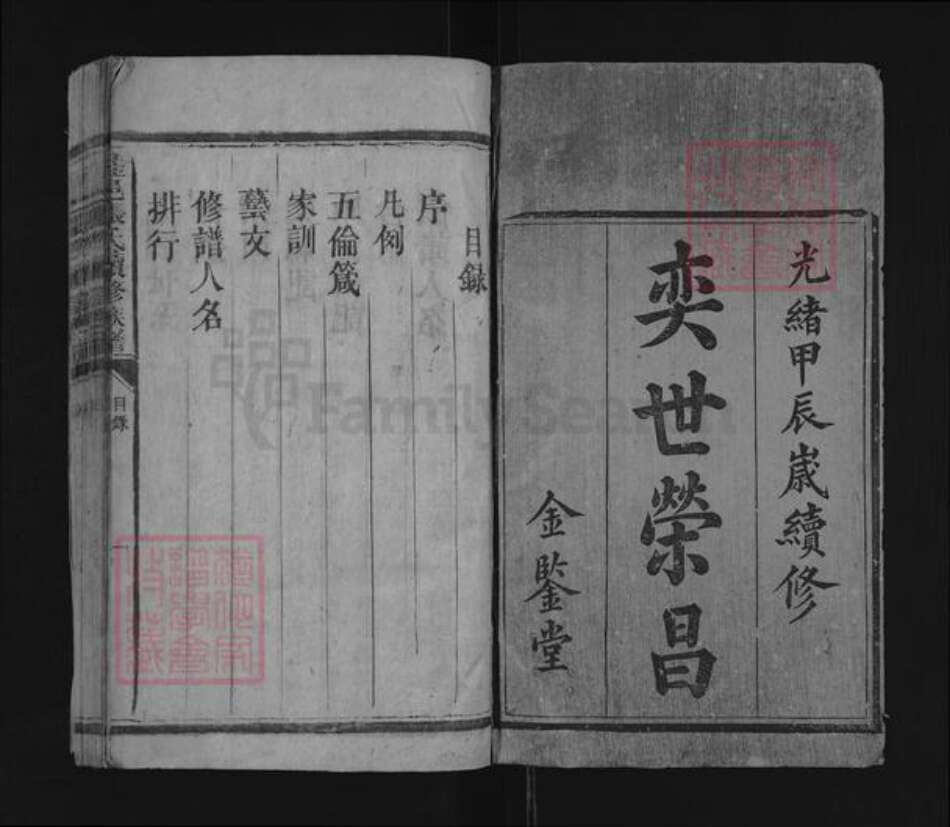 光緒甲辰歲續修
奕世榮昌
金鑒堂
目録
序
凡例
五倫箴
家訓
藝文
修譜人名
排行
氏續修族譜
目録
FamilySearch